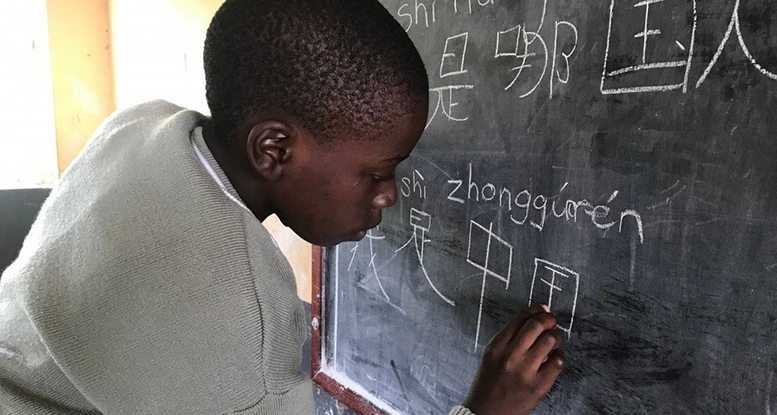 shì nǎ
是哪国人
shì zhongguórén
我是中国